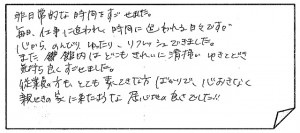 非日常的な時間をすごせました。
毎日、仕事に追われ、時間に追われる日々ですが
心から、のんびり、ゆったり、リフレッシュできました。
また館内はどこもきれいに清掃がゆきとどき
気持ち良くすごせました。
従業員の方もとても素てきな方ばかりで、心おきなく
親せきの家に来たような居心地の良さでした!!